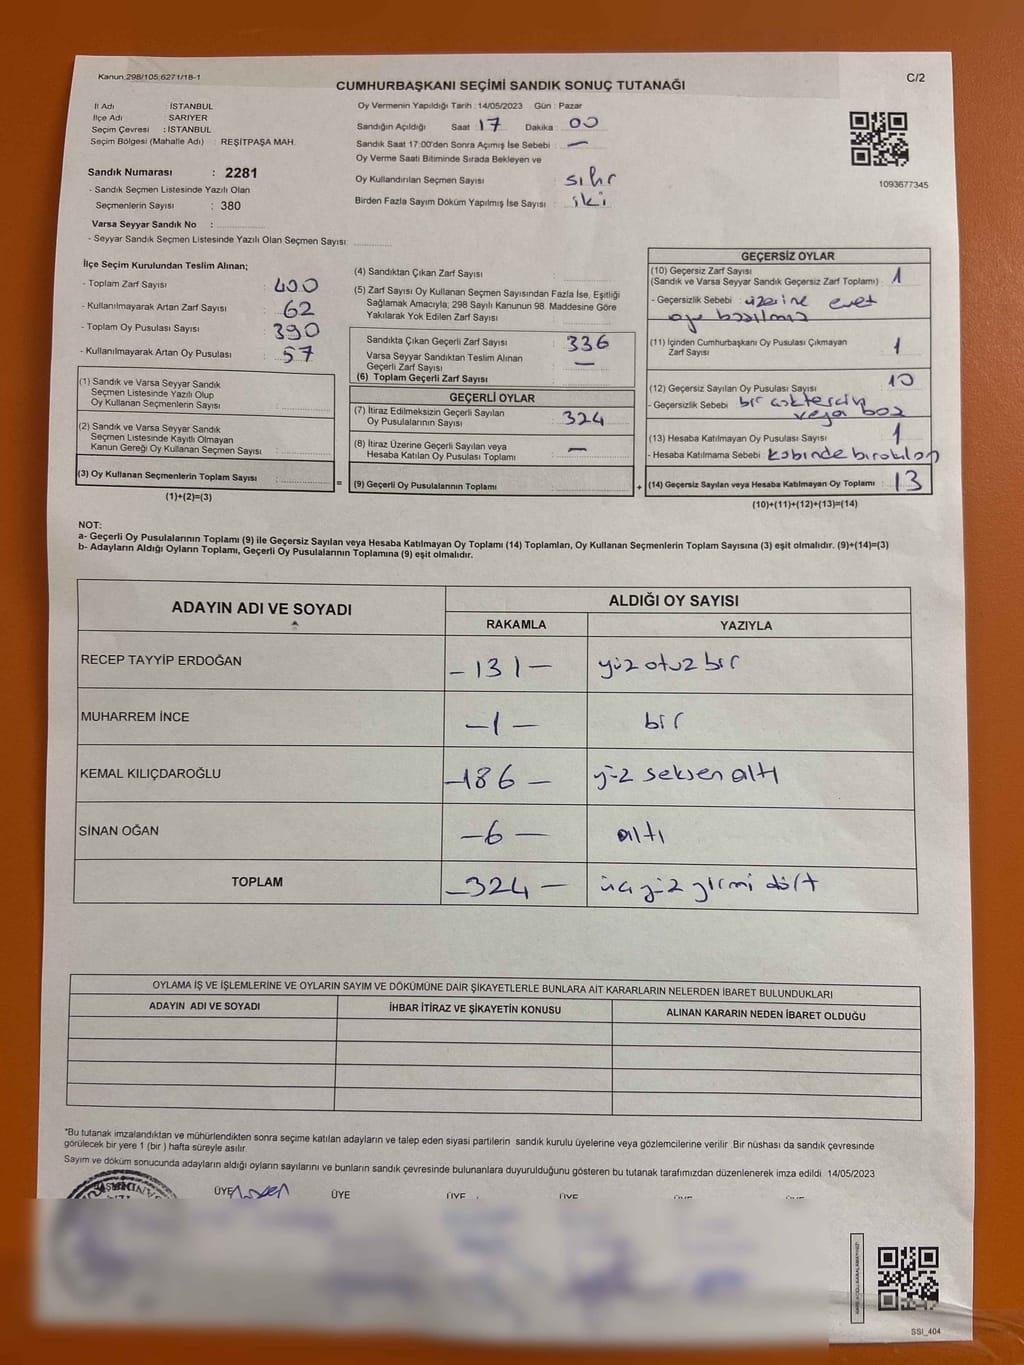 Kanun,298/105,6271/18-1
C/2
CUMHURBAŞKANI SEÇİMİ SANDIK SONUÇ TUTANAĞI
İl Adı : İSTANBUL
İlçe Adı : SARIYER
Seçim Çevresi : İSTANBUL
Seçim Bölgesi (Mahalle Adı) : REŞİTPAŞA MAH.
Oy Vermenin Yapıldığı Tarih : 14/05/2023 Gün : Pazar
Sandığın Açıldığı Saat : 17 Dakika : 00
Sandık Saat 17:00'den Sonra Açımış İse Sebebi : —
Oy Verme Saati Bitiminde Sırada Bekleyen ve
Oy Kullandırılan Seçmen Sayısı : sıfır
Birden Fazla Sayım Döküm Yapılmış İse Sayısı : iki
1093677345
Sandık Numarası : 2281
- Sandık Seçmen Listesinde Yazılı Olan
Seçmenlerin Sayısı : 380
Varsa Seyyar Sandık No :
- Seyyar Sandık Seçmen Listesinde Yazılı Olan Seçmen Sayısı:
İlçe Seçim Kurulundan Teslim Alınan;
- Toplam Zarf Sayısı : 400
- Kullanılmayarak Artan Zarf Sayısı : 62
- Toplam Oy Pusulası Sayısı : 390
- Kullanılmayarak Artan Oy Pusulası : 57
(1) Sandık ve Varsa Seyyar Sandık
Seçmen Listesinde Yazılı Olup
Oy Kullanan Seçmenlerin Sayısı :
(2) Sandık ve Varsa Seyyar Sandık
Seçmen Listesinde Kayıtlı Olmayan
Kanun Gereği Oy Kullanan Seçmen Sayısı :
(3) Oy Kullanan Seçmenlerin Toplam Sayısı :
(1)+(2)=(3)
=
(4) Sandıktan Çıkan Zarf Sayısı :
(5) Zarf Sayısı Oy Kullanan Seçmen Sayısından Fazla İse, Eşitliği
Sağlamak Amacıyla; 298 Sayılı Kanunun 98. Maddesine Göre
Yakılarak Yok Edilen Zarf Sayısı :
Sandıkta Çıkan Geçerli Zarf Sayısı : 336
Varsa Seyyar Sandıktan Teslim Alınan
Geçerli Zarf Sayısı : —
(6) Toplam Geçerli Zarf Sayısı :
GEÇERLİ OYLAR
(7) İtiraz Edilmeksizin Geçerli Sayılan
Oy Pusulalarının Sayısı : 324
(8) İtiraz Üzerine Geçerli Sayılan veya
Hesaba Katılan Oy Pusulası Toplamı : —
(9) Geçerli Oy Pusulalarının Toplamı :
+
GEÇERSİZ OYLAR
(10) Geçersiz Zarf Sayısı
(Sandık ve Varsa Seyyar Sandık Geçersiz Zarf Toplamı) : 1
- Geçersizlik Sebebi : üzerine evet
oyu basılmış
(11) İçinden Cumhurbaşkanı Oy Pusulası Çıkmayan
Zarf Sayısı : 1
(12) Geçersiz Sayılan Oy Pusulası Sayısı : 10
- Geçersizlik Sebebi : bir çoktercih
veya boş
(13) Hesaba Katılmayan Oy Pusulası Sayısı : 1
- Hesaba Katılmama Sebebi : kabinde bırakılan
(14) Geçersiz Sayılan veya Hesaba Katılmayan Oy Toplamı : 13
(10)+(11)+(12)+(13)=(14)
NOT:
a- Geçerli Oy Pusulalarının Toplamı (9) ile Geçersiz Sayılan veya Hesaba Katılmayan Oy Toplamı (14) Toplamları, Oy Kullanan Seçmenlerin Toplam Sayısına (3) eşit olmalıdır. (9)+(14)=(3)
b- Adayların Aldığı Oyların Toplamı, Geçerli Oy Pusulalarının Toplamına (9) eşit olmalıdır.
ADAYIN ADI VE SOYADI
ALDIĞI OY SAYISI
RAKAMLA YAZIYLA
RECEP TAYYİP ERDOĞAN –131– yüz otuz bir
MUHARREM İNCE –1– bir
KEMAL KILIÇDAROĞLU –186– yüz seksen altı
SİNAN OĞAN –6– altı
TOPLAM –324– üç yüz yirmi dört
OYLAMA İŞ VE İŞLEMLERİNE VE OYLARIN SAYIM VE DÖKÜMÜNE DAİR ŞİKAYETLERLE BUNLARA AİT KARARLARIN NELERDEN İBARET BULUNDUKLARI
ADAYIN ADI VE SOYADI İHBAR İTİRAZ VE ŞİKAYETİN KONUSU ALINAN KARARIN NEDEN İBARET OLDUĞU
*Bu tutanak imzalandıktan ve mühürlendikten sonra seçime katılan adayların ve talep eden siyasi partilerin sandık kurulu üyelerine veya gözlemcilerine verilir. Bir nüshası da sandık çevresinde
görülecek bir yere 1 (bir ) hafta süreyle asılır.
Sayım ve döküm sonucunda adayların aldığı oyların sayılarını ve bunların sandık çevresinde bulunanlara duyurulduğunu gösteren bu tutanak tarafımızdan düzenlenerek imza edildi. 14/05/2023
ÜYE ÜYE ÜYE ÜYE
SSI_404